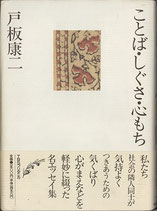 ことば・しぐさ・心もち
戸板康二
私たち
社会の隣人同士が
気持よく
つきあうための
気くばり
心がまえなどを
軽妙に綴った
名エッセイ集